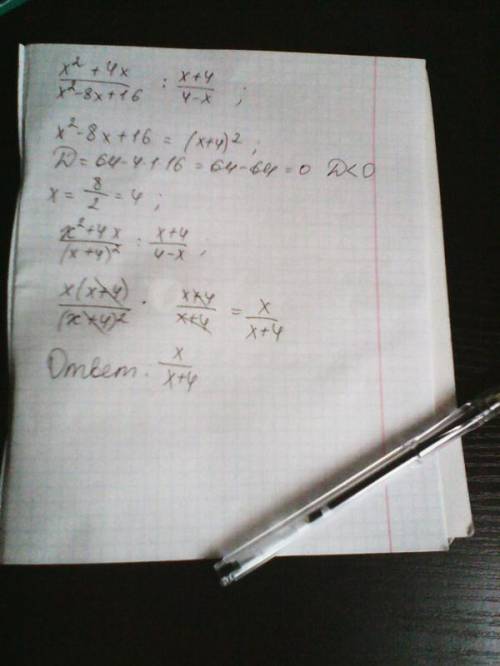 x² + 4x / x² - 8x + 16 : x+4 / 4-x ;
x² - 8x + 16 = (x+4)² ;
D = 64 - 4·1·16 = 64 - 64 = 0 D<0
x = 8/2 = 4 ;
x² + 4x / (x+4)² : x+4 / 4-x ;
x(x+4) / (x+4)² · x+4 / x+4 = x / x+4
Ответ. x / x+4